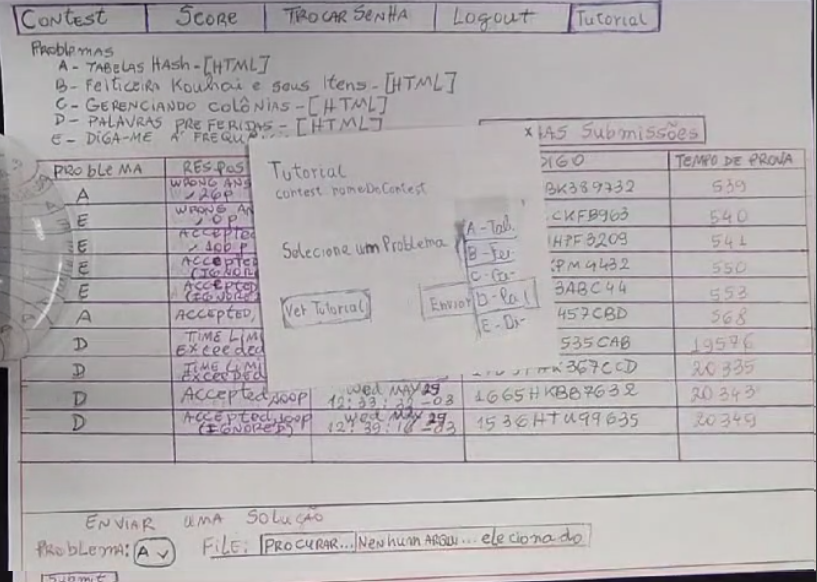 Contest Score TROCAR SENHA Logout Tutorial
Problemas
A - TABELAS Hash - [HTML]
B - Feiticeiro Kouhai e seus Itens - [HTML]
C - GERENCIANDO colÔNIAS - [HTML]
D - PALAVRAS PREFERIDAS - [HTML]
E - DIGA-ME A FREQU
HAS Submissões
PROBLEMA RESPOS DIGO TEMPO DE PROVA
A WRONG ANS BK389732 539
E WRONG AN CKFB963 540
E Accepted 100 P HPF3209 541
E Accepted (IGNOR PM9432 550
E Accepted (IGNOR 3ABC44 553
A Accepted, 457CBD 568
D TIME LIMI Exceeded 535CAB 19576
D TIME LIMI Exceeded 367CCD 20335
D Accepted, 100p Wed MAY 29 12:33:32 -03 1665HKBB7632 20343
D Accepted, 100p (IGNORED) Wed May 29 12:39:16 -03 1536HTU99635 20349
x
Tutorial
contest nomeDeContest
Selecione um Problema
A - Tab.
B - Fei-
C - Ge-
D - Pal
E - Di-
Ver Tutorial
Enviar
ENVIAR UMA Solução
PROBLEMA: A FILE: PROCURAR... Nenhum ARQUI... elecionado
Submit